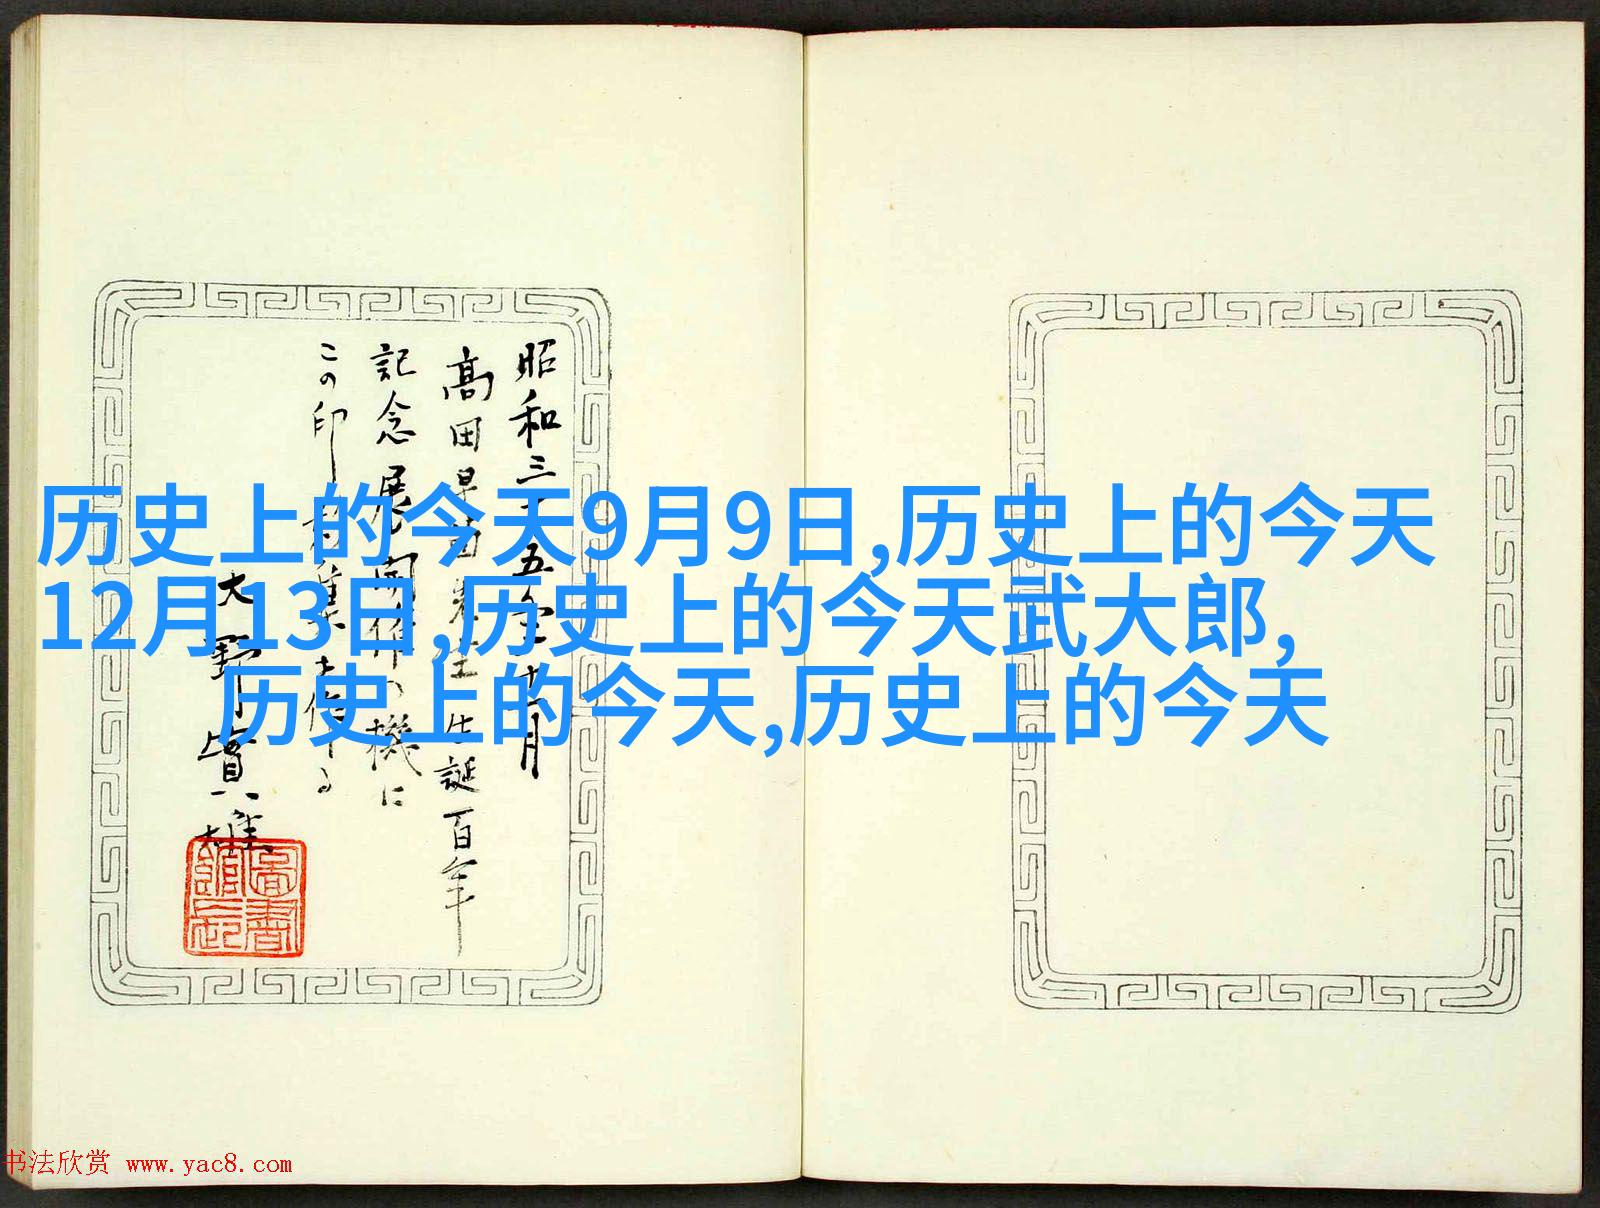 历史上的今天9月9日,历史上的今天
12月13日,历史上的今天武大郎,
历史上的今天,历史上的今天
昭和三十五年十一月
高田早苗先生生誕百年
記念展開催の機に
この印
大野實雄
圖書館長
书法欣赏 www.yac8.com